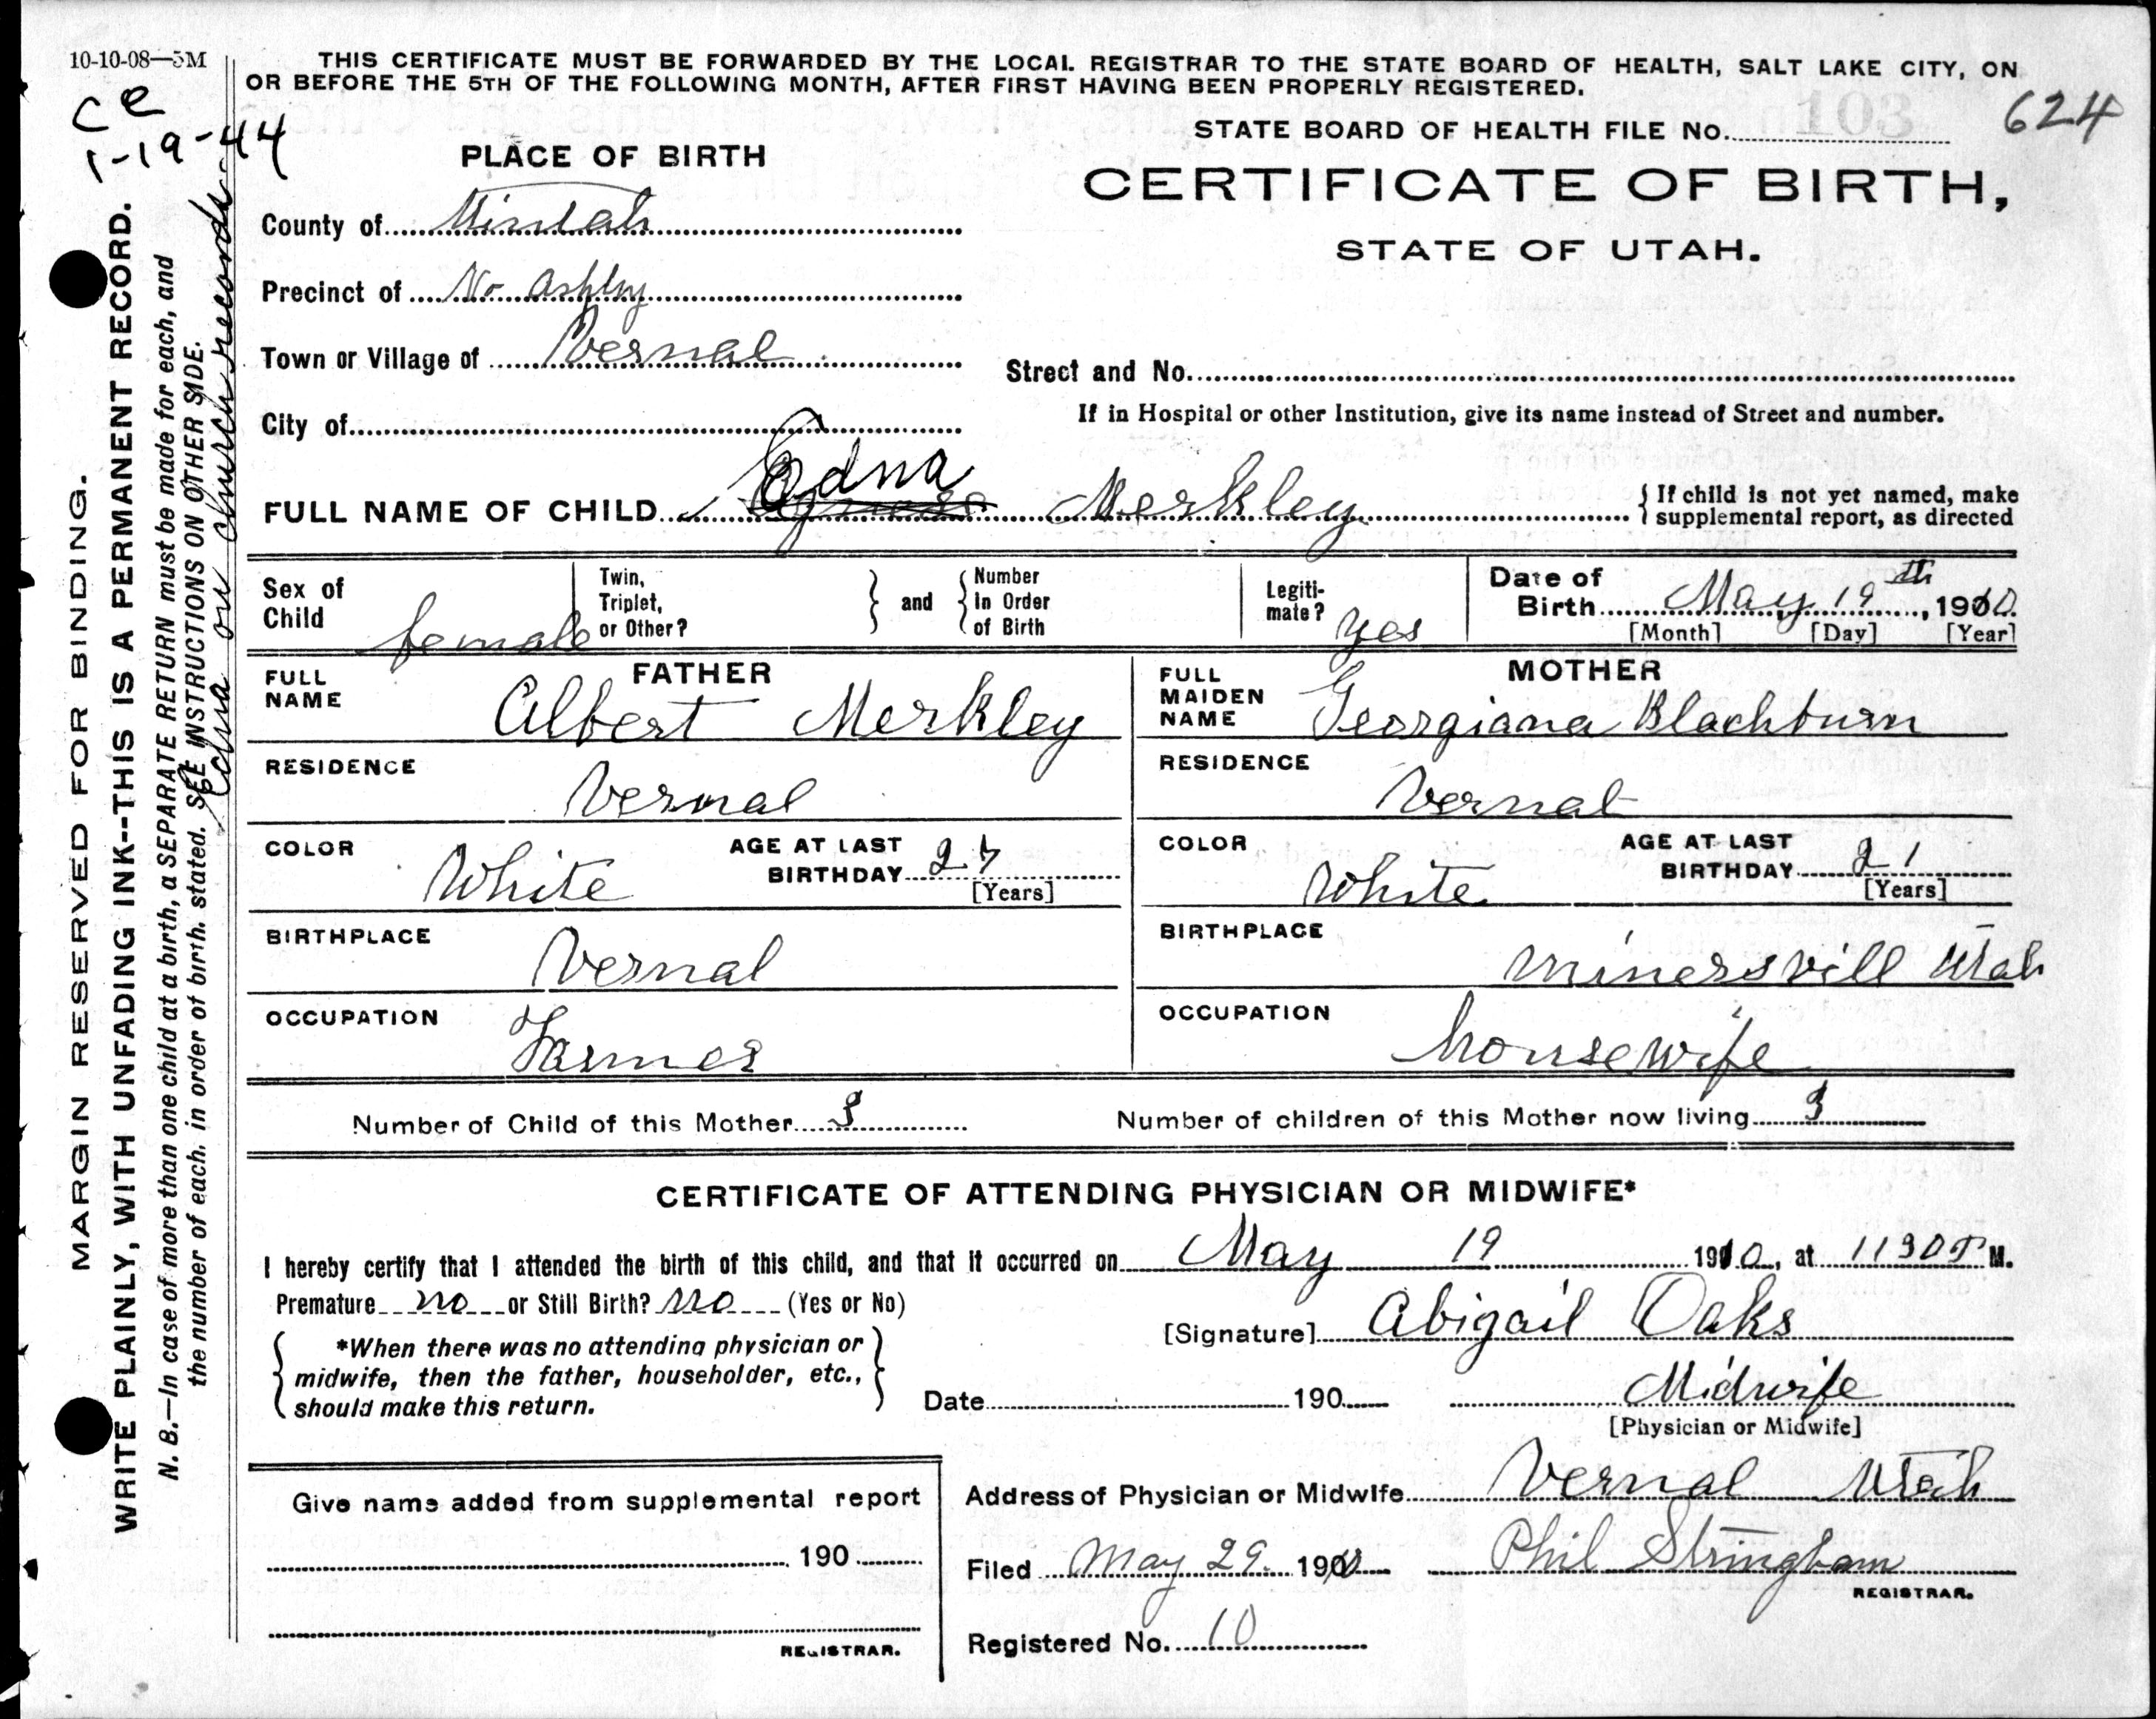 10-10-08—5M
THIS CERTIFICATE MUST BE FORWARDED BY THE LOCAL REGISTRAR TO THE STATE BOARD OF HEALTH, SALT LAKE CITY, ON
OR BEFORE THE 5TH OF THE FOLLOWING MONTH, AFTER FIRST HAVING BEEN PROPERLY REGISTERED.
ce
1-19-44
STATE BOARD OF HEALTH FILE No. 103 624
PLACE OF BIRTH
CERTIFICATE OF BIRTH,
STATE OF UTAH.
County of Uintah
Precinct of No Ashley
Town or Village of Vernal
Street and No.
If in Hospital or other Institution, give its name instead of Street and number.
City of
Edna
FULL NAME OF CHILD Agness Merkley
If child is not yet named, make
supplemental report, as directed
Sex of Child female
Twin, Triplet, or Other?
and
Number in Order of Birth
Legitimate? yes
Date of Birth May 19th, 1910
[Month] [Day] [Year]
FATHER
FULL NAME Albert Merkley
RESIDENCE Vernal
COLOR White
AGE AT LAST BIRTHDAY 27
[Years]
BIRTHPLACE Vernal
OCCUPATION Farmer
MOTHER
FULL MAIDEN NAME Georgiana Blackburn
RESIDENCE Vernal
COLOR White
AGE AT LAST BIRTHDAY 21
[Years]
BIRTHPLACE Minersvill Utah
OCCUPATION housewife
Number of Child of this Mother 3
Number of children of this Mother now living 3
CERTIFICATE OF ATTENDING PHYSICIAN OR MIDWIFE*
I hereby certify that I attended the birth of this child, and that it occurred on May 19 1910, at 1130 P M.
Premature no or Still Birth? no (Yes or No)
[Signature] Abigail Oaks
*When there was no attending physician or
midwife, then the father, householder, etc.,
should make this return.
Date 190
Midwife
[Physician or Midwife]
Address of Physician or Midwife Vernal Utah
Give name added from supplemental report
190
REGISTRAR.
Filed May 29 1910
Phil Stringham
REGISTRAR.
Registered No. 10
MARGIN RESERVED FOR BINDING.
WRITE PLAINLY, WITH UNFADING INK--THIS IS A PERMANENT RECORD.
N. B.—In case of more than one child at a birth, a SEPARATE RETURN must be made for each, and
the number of each, in order of birth, stated. SEE INSTRUCTIONS ON OTHER SIDE.
Edna on church records